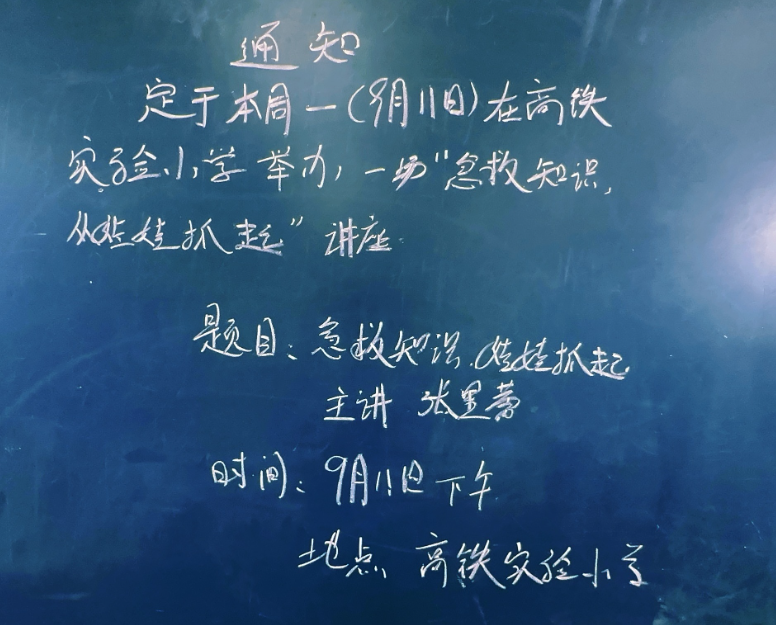 通知
定于本周一(9月11日)在高铁
实验小学举办,一场"急救知识,
从娃娃抓起"讲座
题目:急救知识.娃娃抓起
主讲 张里
时间:9月11日下午
地点 高铁实验小学